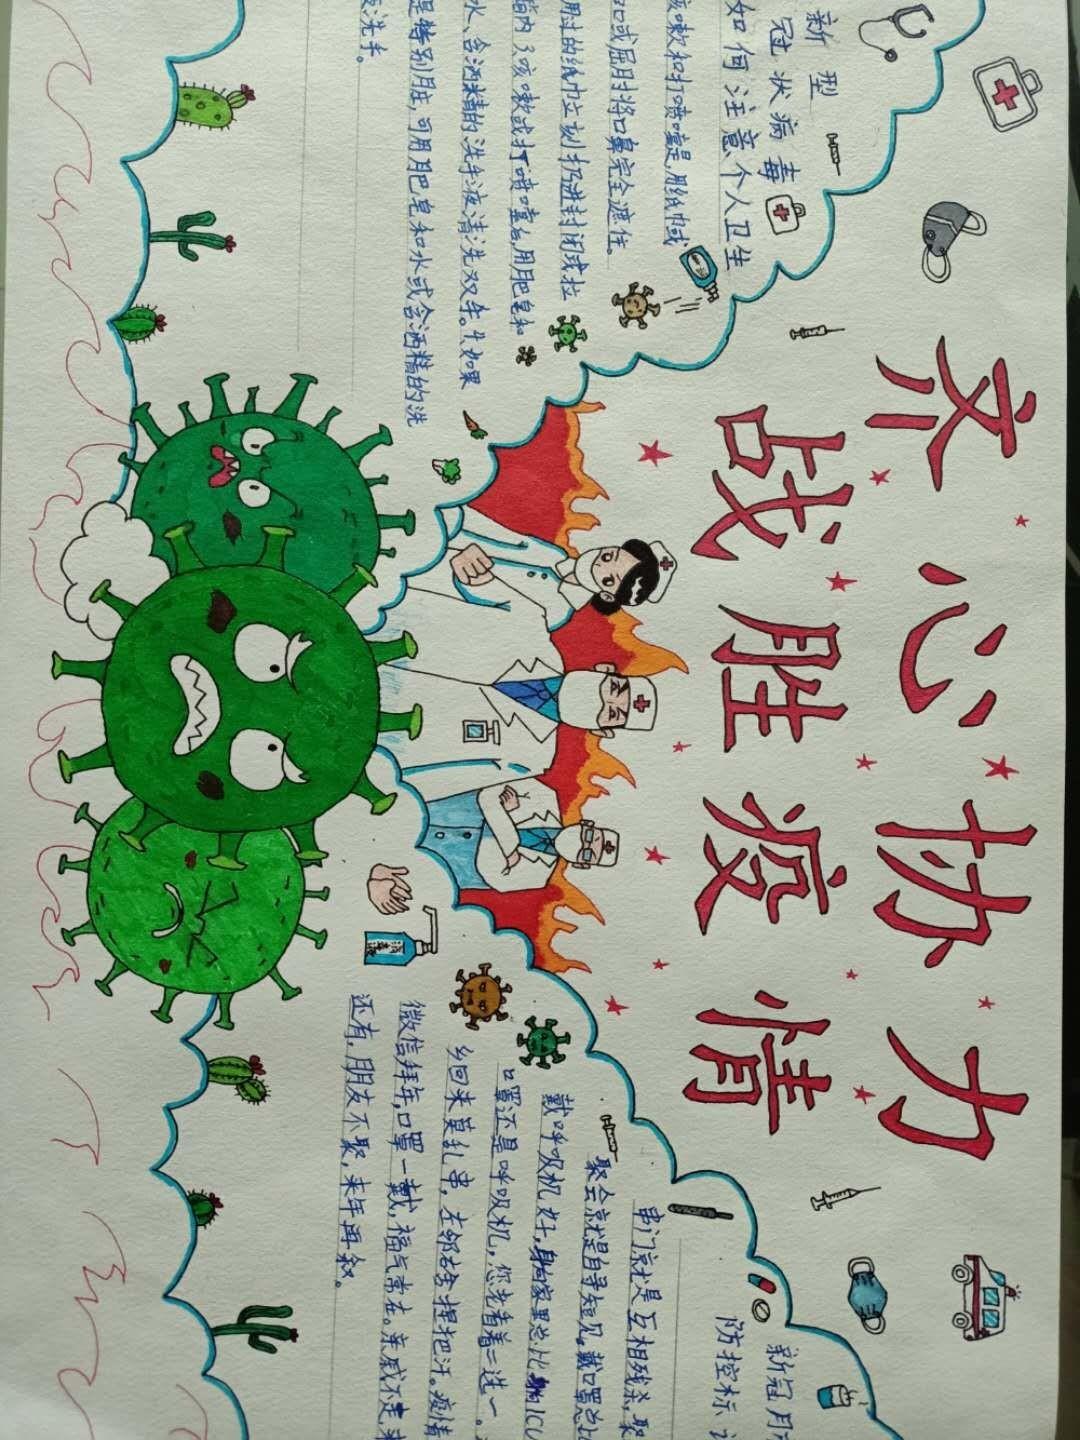 齐心协力
战胜疫情
新型
冠状病毒
如何注意个人卫生
咳嗽和打喷嚏是,用纸巾或
口或屈肘将口鼻完全遮住。
用过的纸巾立刻扔进封闭或垃
箱内3咳嗽或打喷嚏后,用肥皂和
水、含洒精的洗手液清洗双手。4.如果
是特别脏,可用肥皂和水或含洒精的洗
液洗手。
消毒
新冠
防控标
串门就是互相残杀,聚
聚会就是自寻短见。戴口罩总比
戴呼吸机好,躺家里总比躺ICU
口罩还是呼吸机,您老看着二选一。
乡回来莫乱串,左邻右舍捏把汗。疫情
微信拜年,口罩一戴,福气常在。亲戚不走,来
还有,朋友不聚,来年再叙。